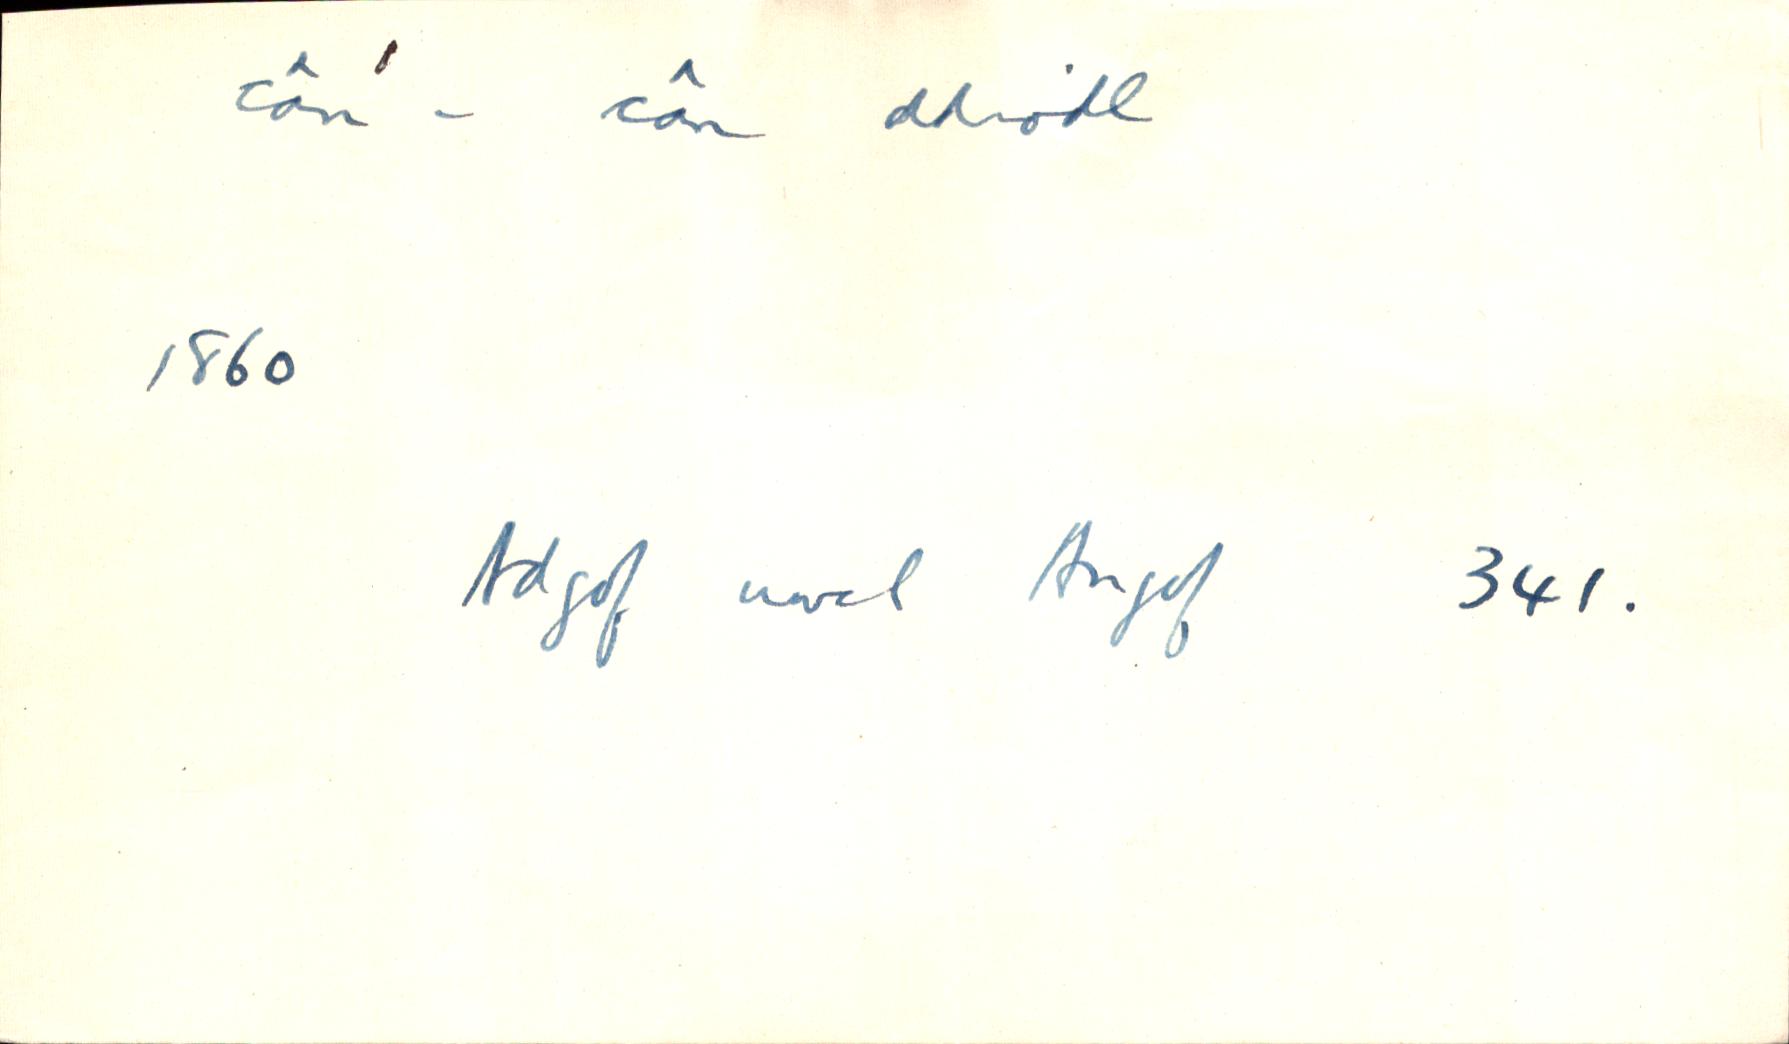 cân¹ - cân ddiodl
1860
Adgof uwch Angof 341.